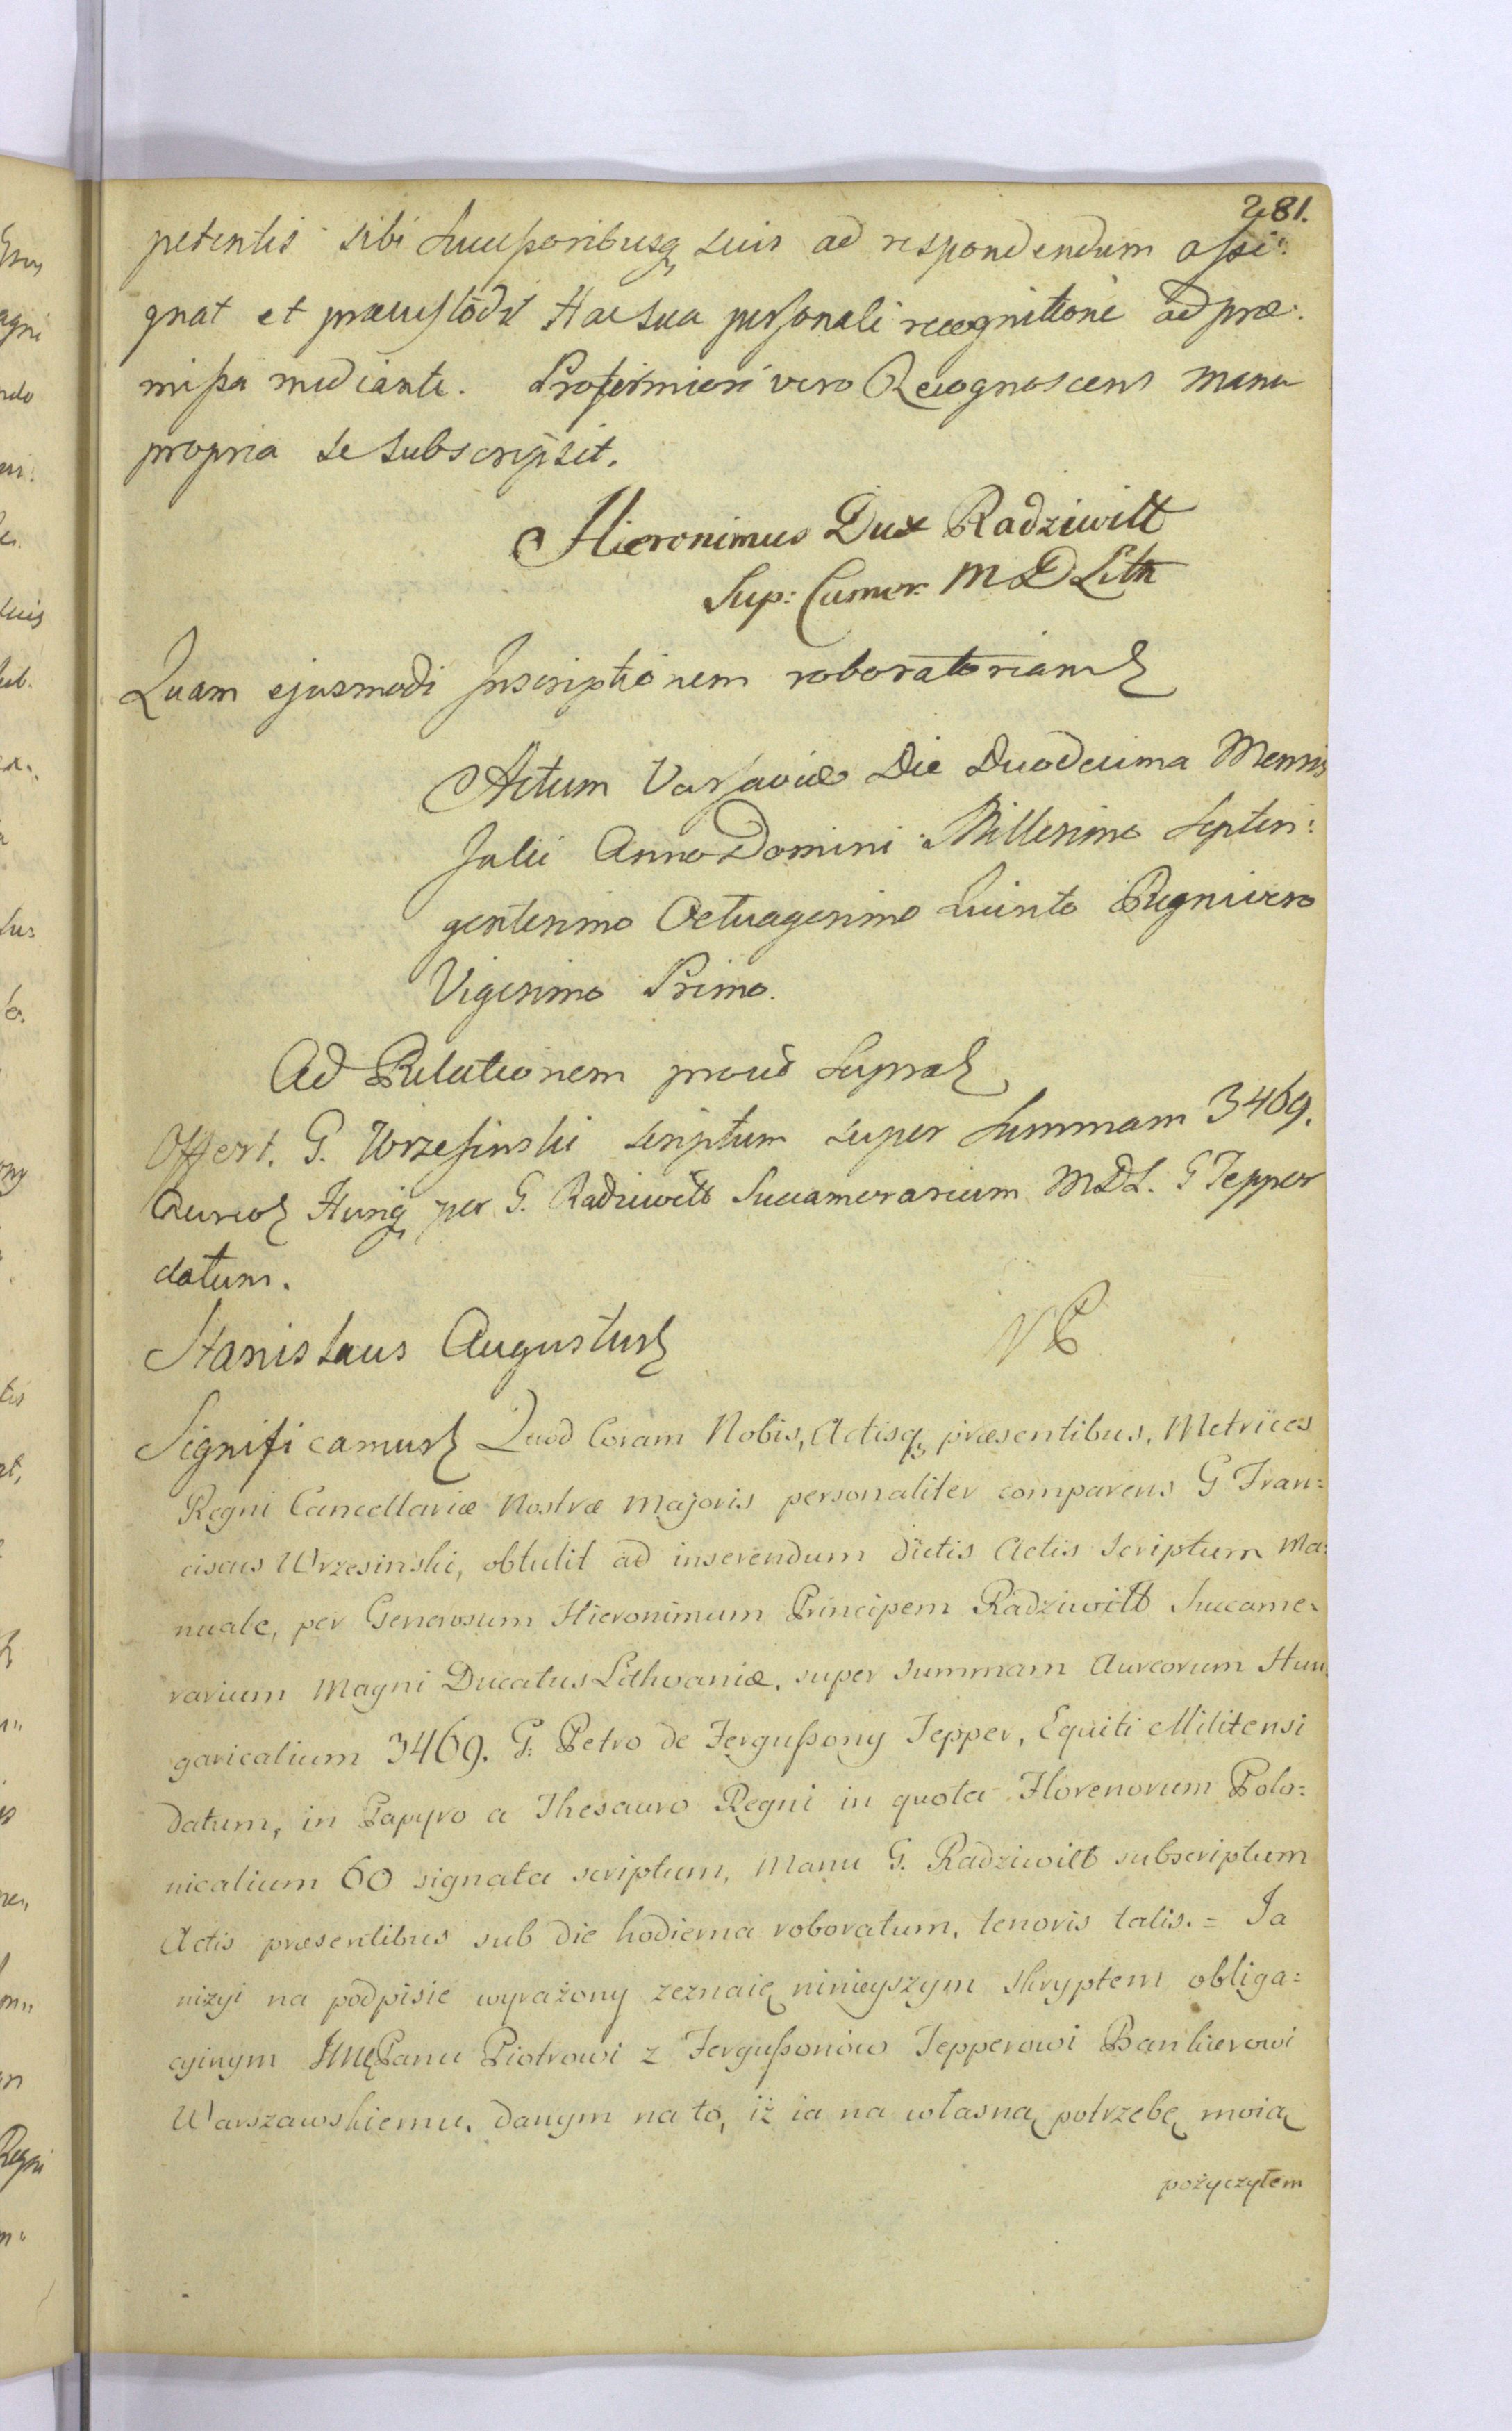 281.
petentis sibi Successoribusq suis ad respondendum assi:
gnat et præcustodit Hac sua personali recognitione ad præ:
missa mediante. Pro firmiori vero Recognoscens manu
propria se subscripsit.
Hieronimus Dux Radziwiłł
Sup: Camer: M D Lith
Quam ejusmodi Inscriptionem roboratoriam
Actum Varsaviæ Die Duodecima Mensis
Julii Anno Domini Millesimo Septin:
gentesimo Octuagesimo Quinto Regni vero
Vigesimo Primo.
Ad Relationem prout supra
Offert. G. Wrzesinski scriptum super summam 3469.
Aureor Hung per G. Radziwiłł Succamerarium M D L. G Tepper
datum.
Stanislaus Augustus
Significamus Quod Coram Nobis, Actisq præsentibus, Metrices
Regni Cancellariæ Nostræ Majoris personaliter comparens G Fran=
ciscus Wrzesinski, obtulit ad inserendum dictis Actis Scriptum Ma:
nuale, per Generosum Hieronimum Principem Radziwiłł Succame=
rarium Magni Ducatus Lithvaniæ, super summam Aureorum Hun:
garicalium 3469. G: Petro de Fergussony Tepper, Equiti Militensi
datum, in Papyro a Thesauro Regni in quota Florenorum Polo=
nicalium 60 signata scriptum, Manu G. Radziwiłł subscriptum
Actis præsentibus sub die hodierna roboratum, tenoris talis. = Ja
niżyi na podpisie wyrażony zeznaię ninieyszym skryptem obliga=
cyinym JmęPanu Piotrowi z Fergussonów Tepperowi Bankierowi
Warszawskiemu, danym na to, iż ia na własną potrzebę moią
pożyczyłem